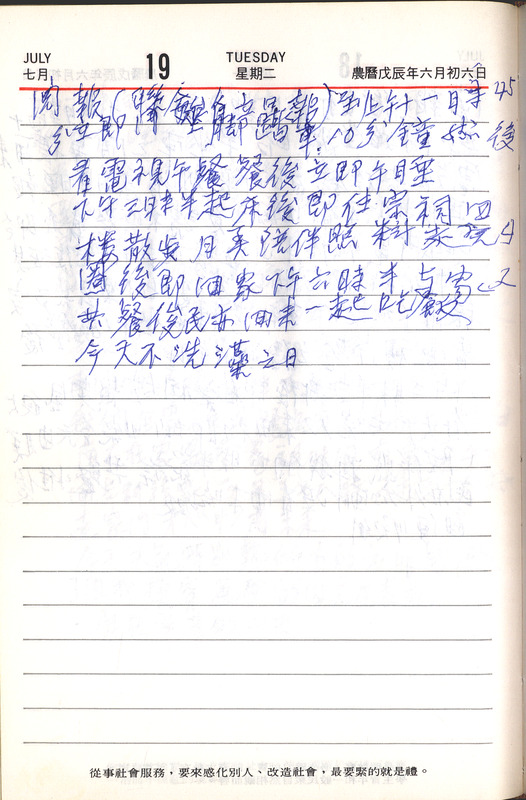 JULY
七月
19
TUESDAY
星期二
農曆戊辰年六月初六日
閱報(聯合自立晚報)到上午十一時45
分立即 腳踏車10分鐘然後
看電視午餐餐後立即午睡
下午三時半起床後即往宗祠四
樓散步月美陪伴照料走完4
圈後即回家下午六時半与
共餐俊民亦回來一起吃飯
今天不洗澡之日
從事社會服務，要來感化別人、改造社會，最要緊的就是禮。